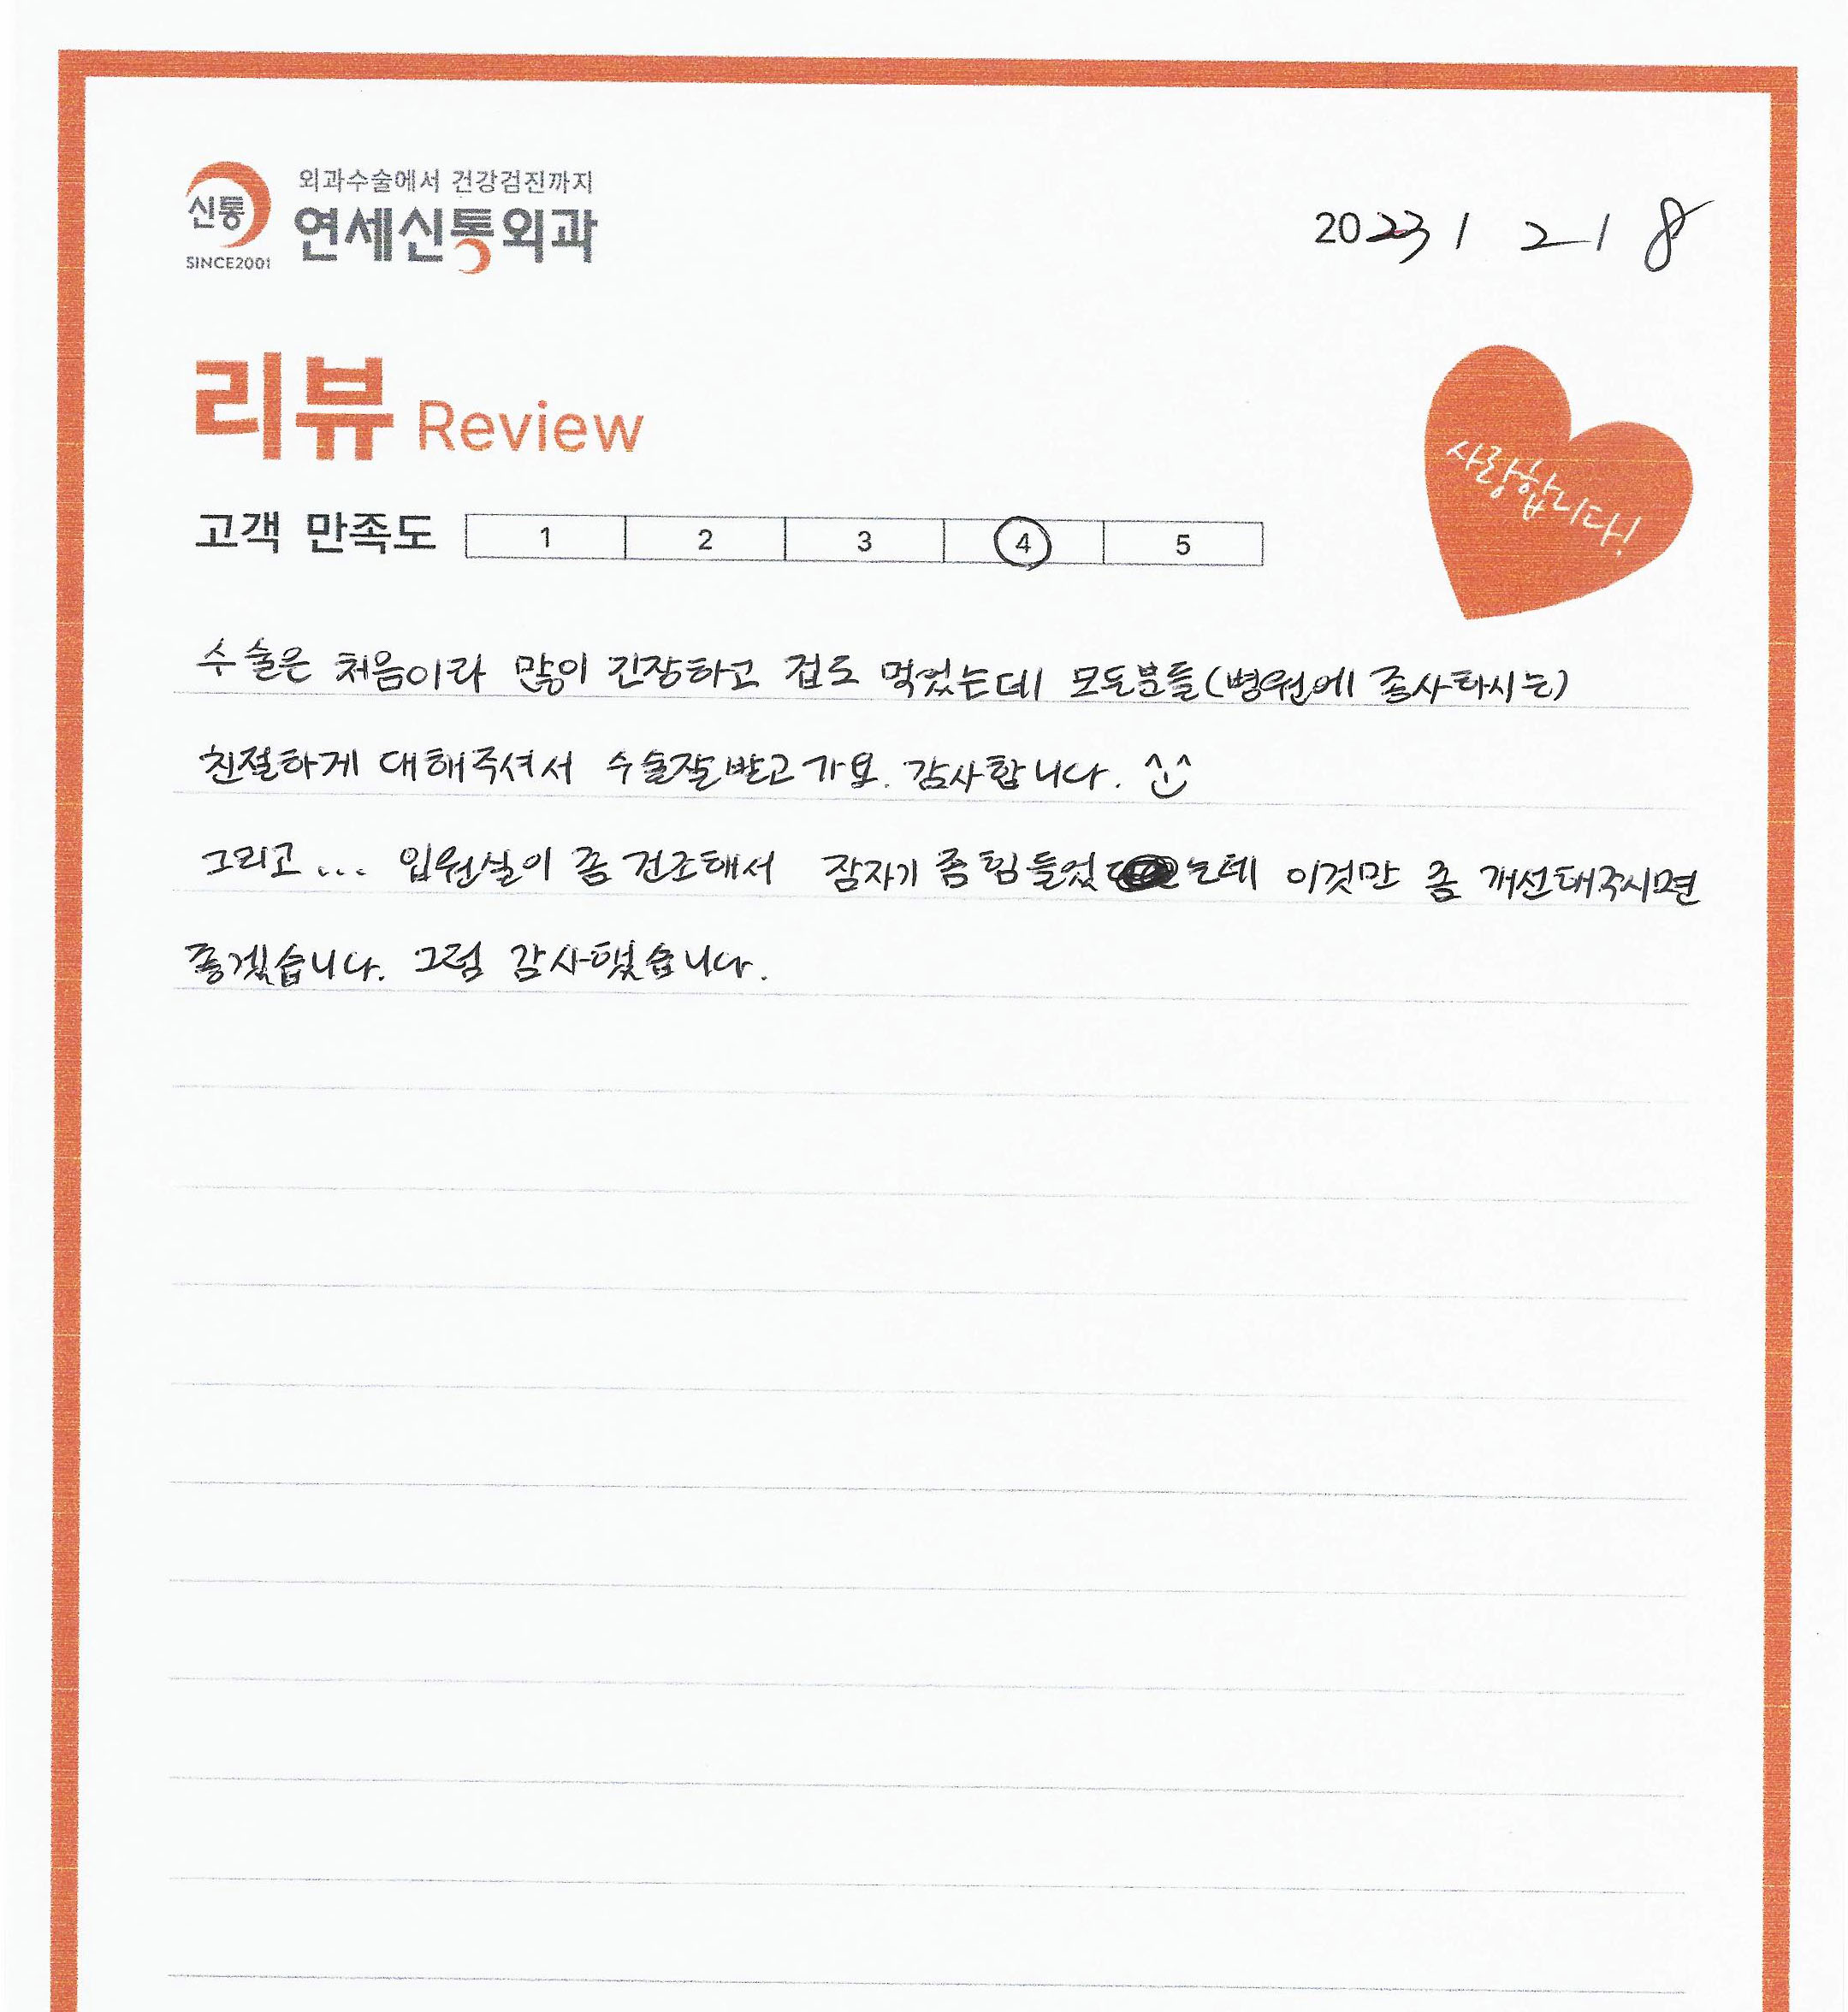 신통
SINCE2001
외과수술에서 건강검진까지
연세신통외과
2023 / 2 / 8
리뷰 Review
사랑합니다!
고객 만족도 1 2 3 4 5
수술은 처음이라 많이 긴장하고 겁도 먹었는데 모든분들(병원에 종사하시는)
친절하게 대해주셔서 수술잘받고가요. 감사합니다. ^^
그리고... 입원실이 좀 건조해서 잠자기 좀 힘들었는데 이것만 좀 개선해주시면
좋겠습니다. 그럼 감사했습니다.